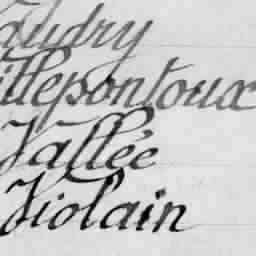 audry
illepontoux
Vallée
Violain